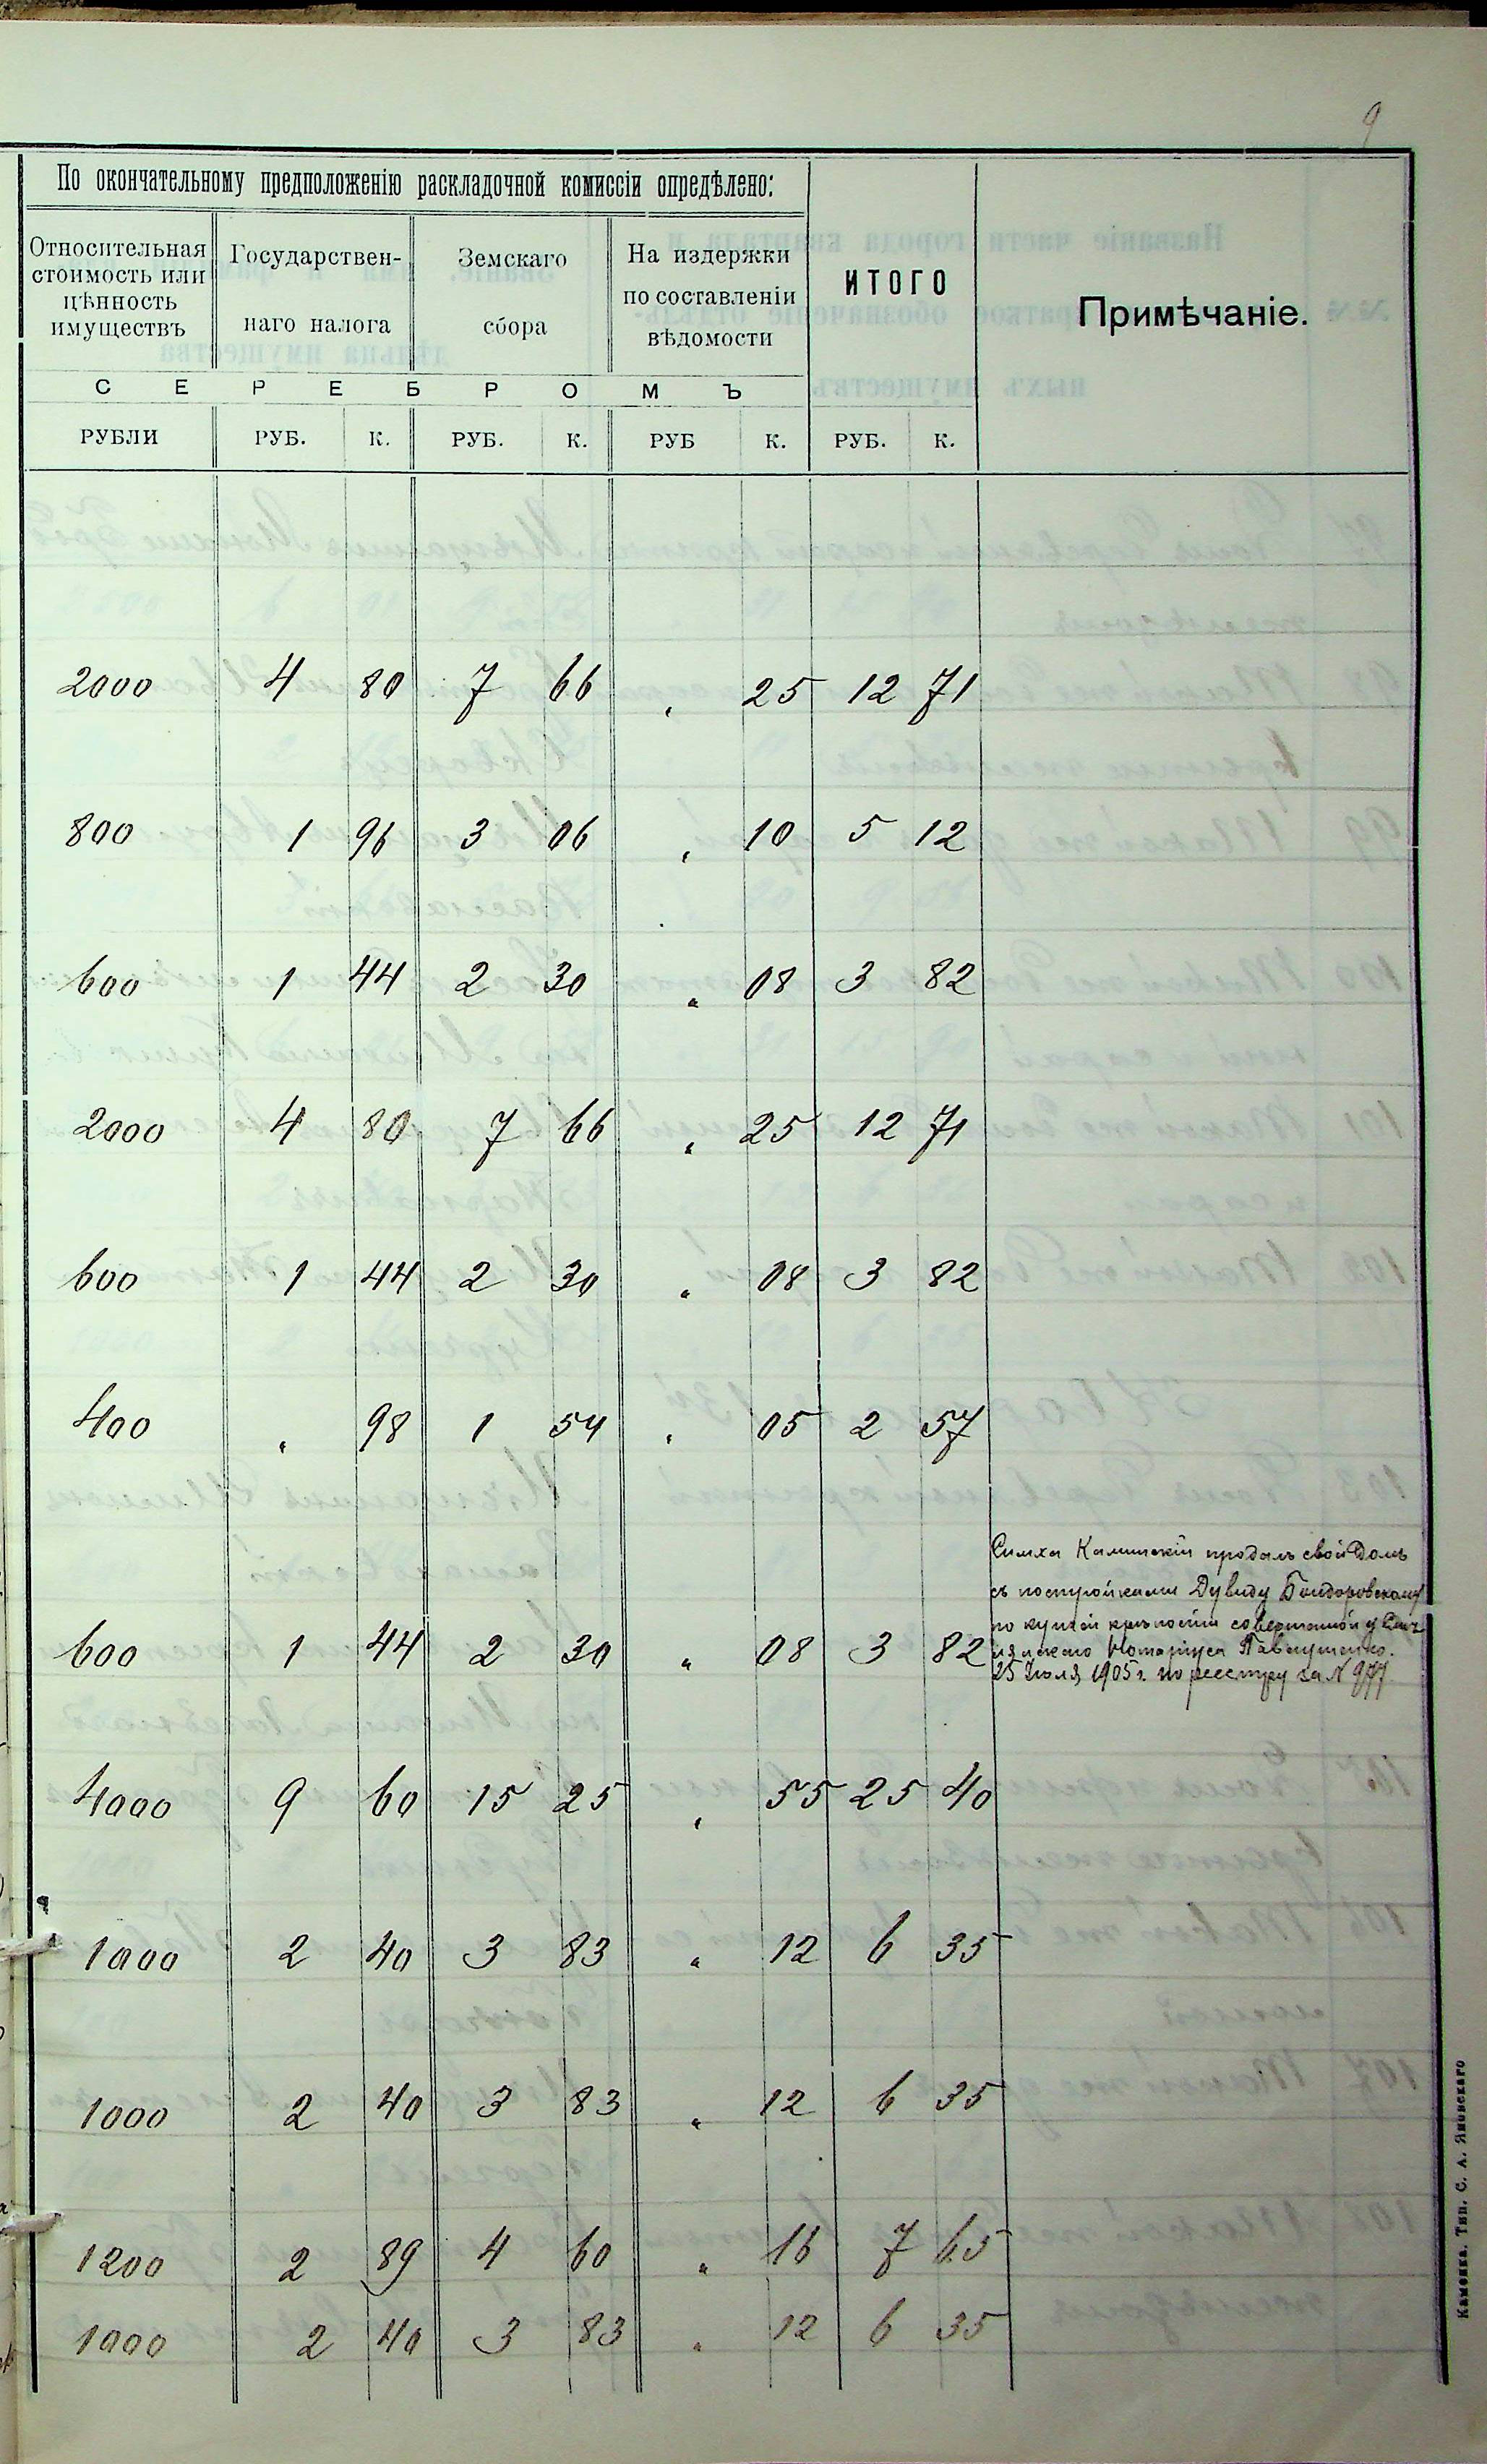 9
По окончательному предположенію раскладочной комиссіи опредѣлено:
Относительная стоимость или цѣнность имуществъ
Государственнаго налога
Земскаго сбора
На издержки по составленіи вѣдомости
ИТОГО
Примѣчаніе.
СЕРЕБРОМЪ
РУБЛИ РУБ. К. РУБ. К. РУБ К. РУБ. К.
2000 4 80 7 66 „ 25 12 71
800 1 96 3 06 „ 10 5 12
600 1 44 2 30 „ 08 3 82
2000 4 80 7 66 „ 25 12 71
600 1 44 2 30 „ 08 3 82
400 „ 98 1 54 „ 05 2 57
Симха Каминскій продалъ свой домъ
съ постройками Дувиду Бондоровскому
по купчей крѣпости совершенной у
Нотаріуса Павлущенко.
25 Іюля 1905 г. по реестру за № 977.
600 1 44 2 30 „ 08 3 82
4000 9 60 15 25 „ 55 25 40
1000 2 40 3 83 „ 12 6 35
1000 2 40 3 83 „ 12 6 35
1200 2 89 4 60 „ 16 7 65
1000 2 40 3 83 „ 12 6 35
Каменка. Тип. С. А. Яновскаго